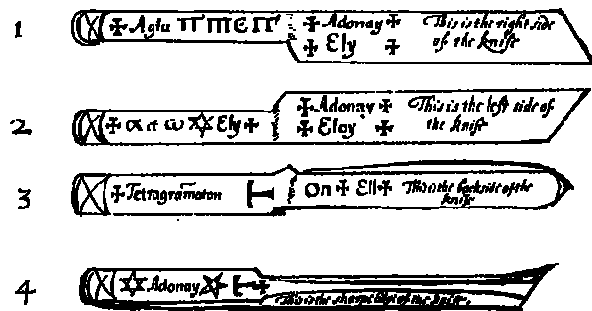 1 ✠ Agla ✠ Adonay ✠ This is the right side
✠ Ely ✠ of the knife
2 ✠ α et ω ✡ Ely ✠ ✠ Adonay ✠ This is the left side of
✠ Eloy ✠ the knife
3 ✠ Tetragramaton On ✠ Ell ✠ This is the backside of the
knife
4 ✡ Adonay This is the sharp edge of the knife.